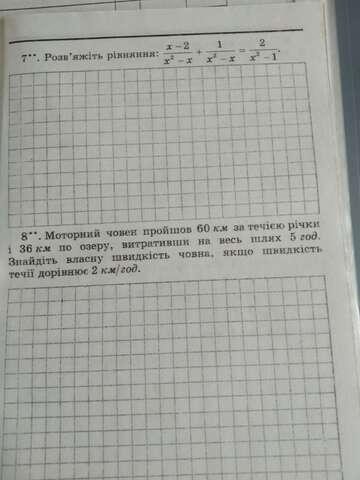 7**. Розв'яжіть рівняння: \frac{x-2}{x^2-x} + \frac{1}{x^2-x} = \frac{2}{x^2-1}.
8**. Моторний човен пройшов 60 км за течією річки
і 36 км по озеру, витративши на весь шлях 5 год.
Знайдіть власну швидкість човна, якщо швидкість
течії дорівнює 2 км/год.